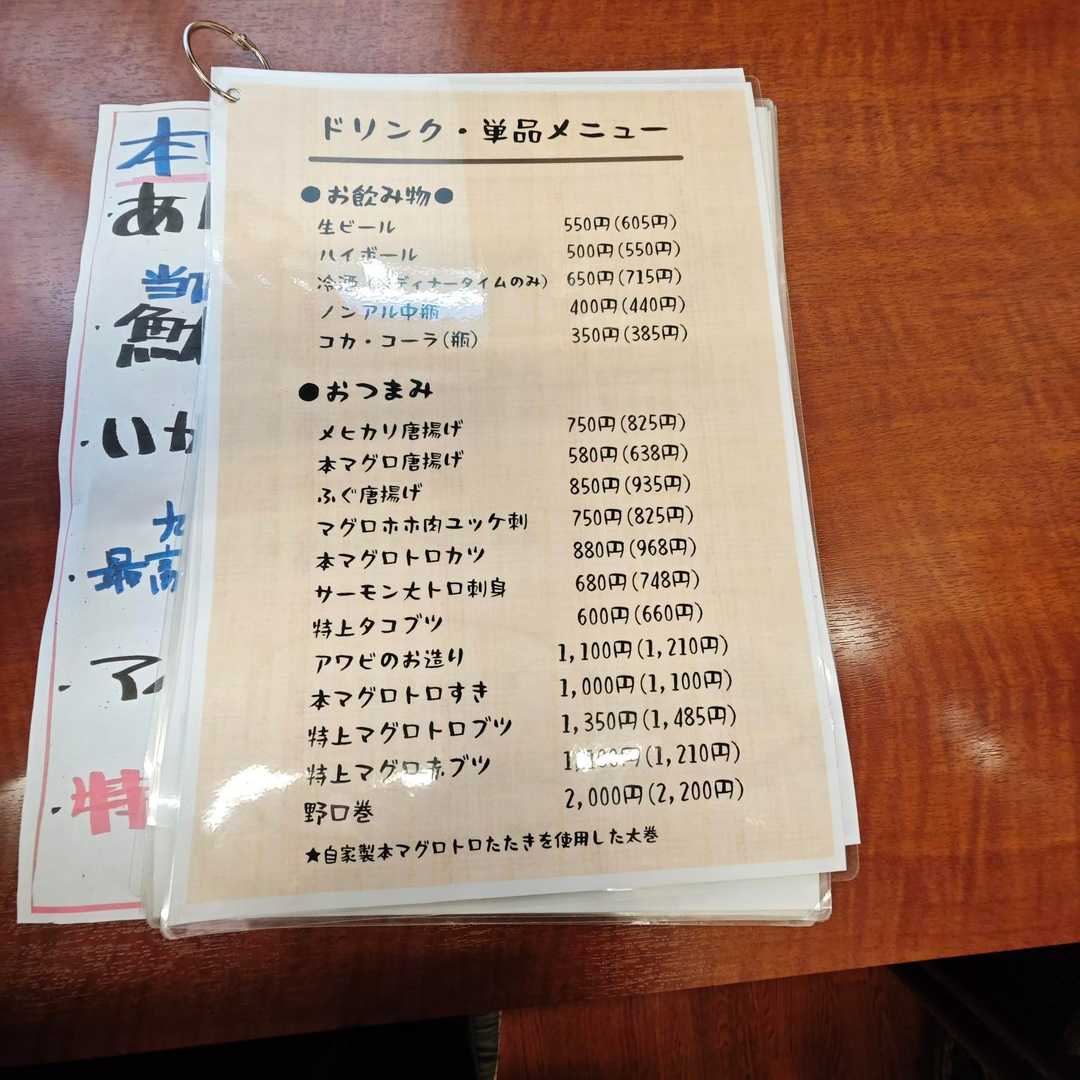 ドリンク・単品メニュー
●お飲み物●
生ビール 550円(605円)
ハイボール 500円(550円)
冷酒 ディナータイムのみ) 650円(715円)
ノンアル中瓶 400円(440円)
コカ・コーラ(瓶) 350円(385円)
●おつまみ
メヒカリ唐揚げ 750円(825円)
本マグロ唐揚げ 580円(638円)
ふぐ唐揚げ 850円(935円)
マグロホホ肉ユッケ刺 750円(825円)
本マグロトロカツ 880円(968円)
サーモン大トロ刺身 680円(748円)
特上タコブツ 600円(660円)
アワビのお造り 1,100円(1,210円)
本マグロトロすき 1,000円(1,100円)
特上マグロトロブツ 1,350円(1,485円)
特上マグロ赤ブツ 1,100円(1,210円)
野口巻 2,000円(2,200円)
★自家製本マグロトロたたきを使用した太巻
本
あ
当
いか
最高
特